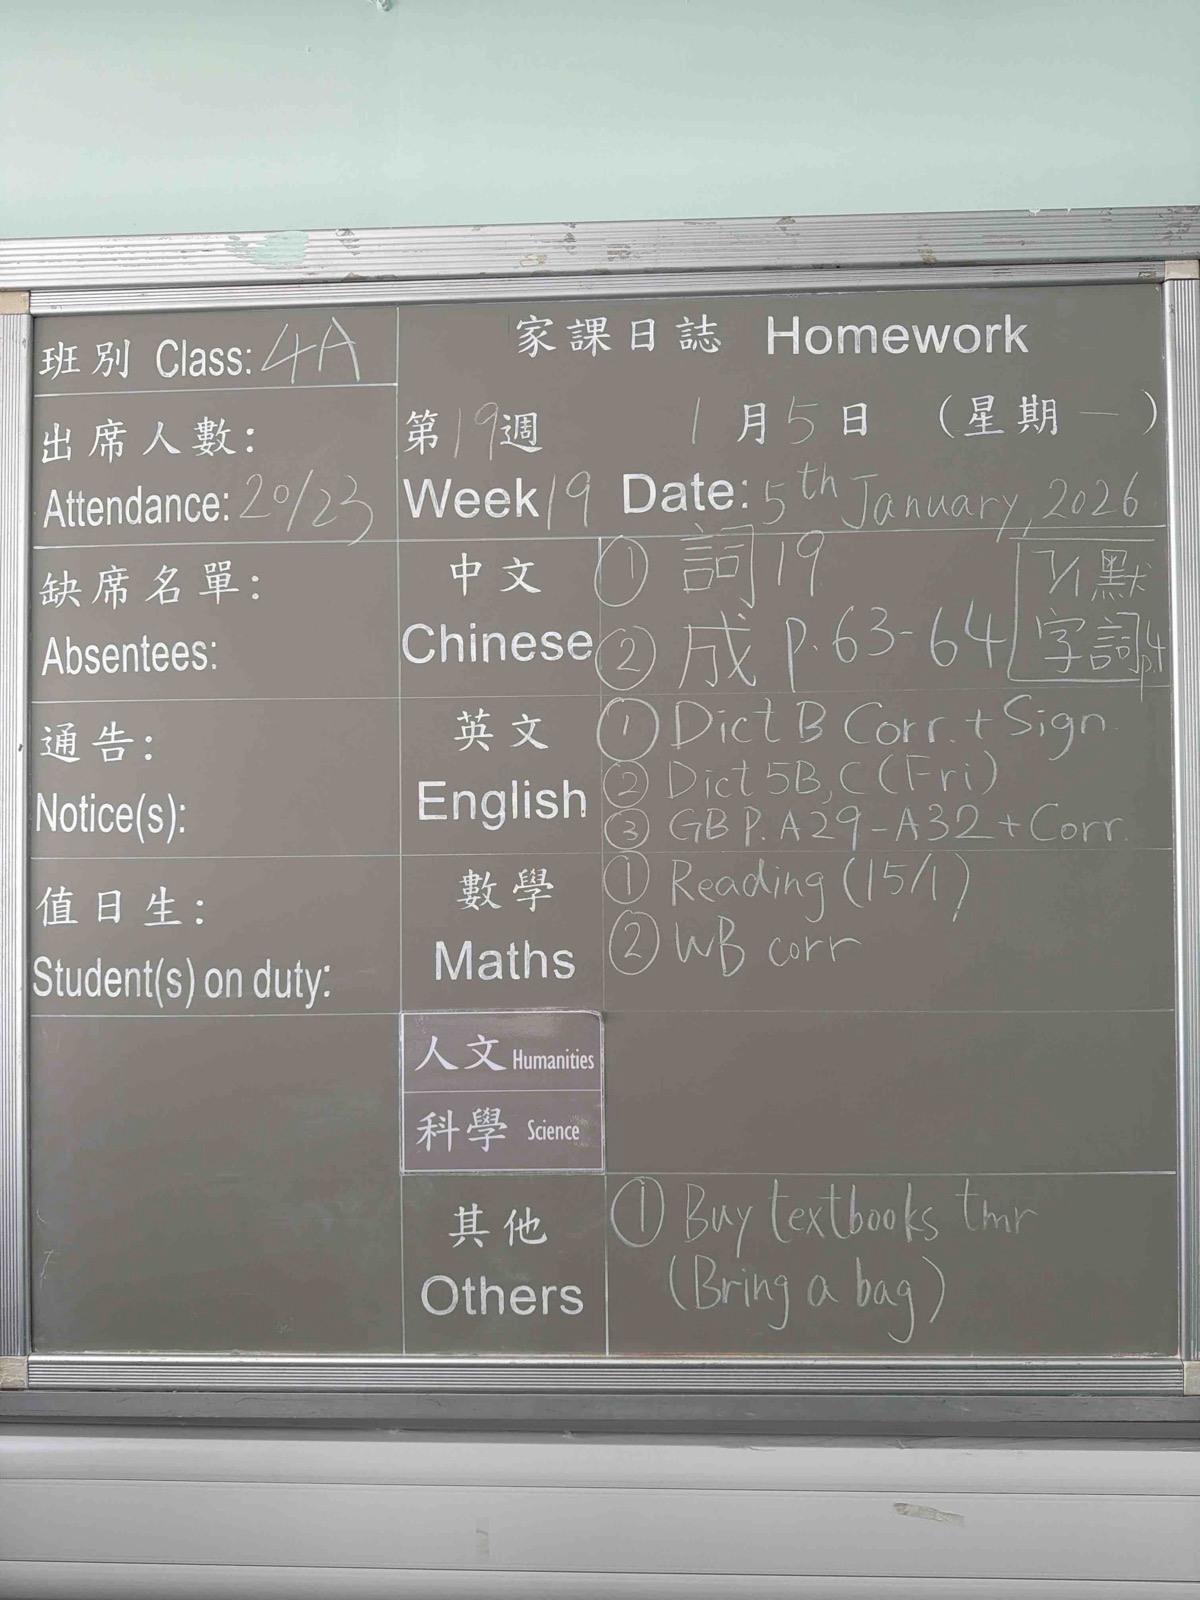 班別 Class: 4A
家課日誌 Homework
出席人數:
Attendance: 20/23
第19週 1月5日 (星期一)
Week 19 Date: 5th January, 2026
缺席名單:
Absentees:
中文
Chinese
① 詞19
② 成 p.63-64
7/1默
字詞
p.4
通告:
Notice(s):
英文
English
① Dict B Corr. + Sign
② Dict 5B, C (Fri)
③ GB P. A29-A32 + Corr.
值日生:
Student(s) on duty:
數學
Maths
① Reading (15/1)
② WB corr
人文 Humanities
科學 Science
其他
Others
① Buy textbooks tmr
(Bring a bag)